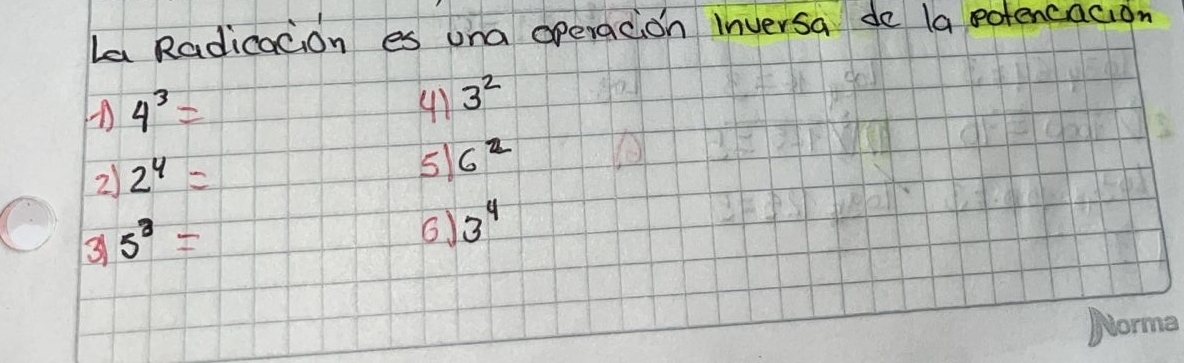 La Radicación es una operación inversa de la potencación
1) 4³ =
4) 3²
2) 2⁴ =
5) 6²
3) 5³ =
6) 3⁴
Norma